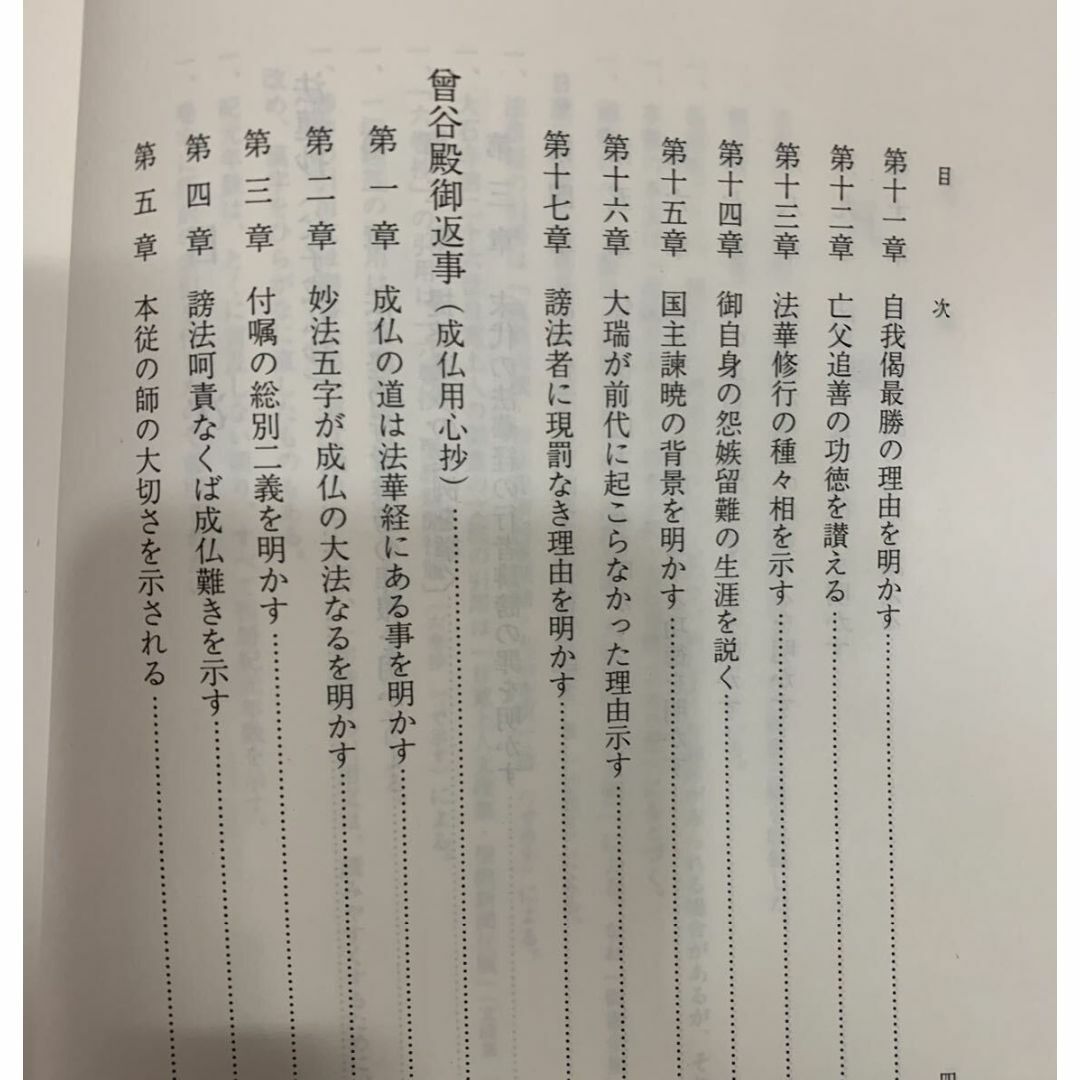 目次
第十一章 自我偈最勝の理由を明かす
第十二章 亡父追善の功徳を讃える
第十三章 法華修行の種々相を示す
第十四章 御自身の怨嫉留難の生涯を説く
第十五章 国主諫暁の背景を明かす
第十六章 大瑞が前代に起こらなかった理由示す
第十七章 謗法者に現罰なき理由を明かす
曾谷殿御返事(成仏用心抄)
第一章 成仏の道は法華経にある事を明かす
第二章 妙法五字が成仏の大法なるを明かす
第三章 付嘱の総別二義を明かす
第四章 謗法呵責なくば成仏難きを示す
第五章 本従の師の大切さを示される
四